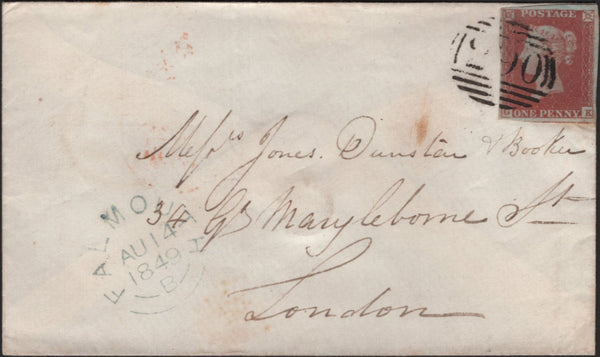 POSTAGE
ONE PENNY
K
Messrs Jones. Dunstan & Booker
34 Gt Marylebone St
London
FALMOUTH
AU 14
1849
B